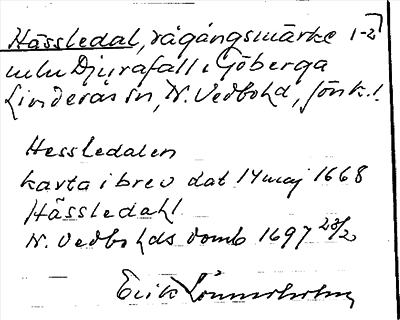 Hässledal, rågångsmärke 1-2
mlm Djurafall o Göberga
Linderås sn, N. Vedbo hd, Jönk.l.
Hessledalen
karta i brev dat 14 maj 1668
Hässledahl
N. Vedbo hds domb 1697 23/2
Erik Lönnerholm